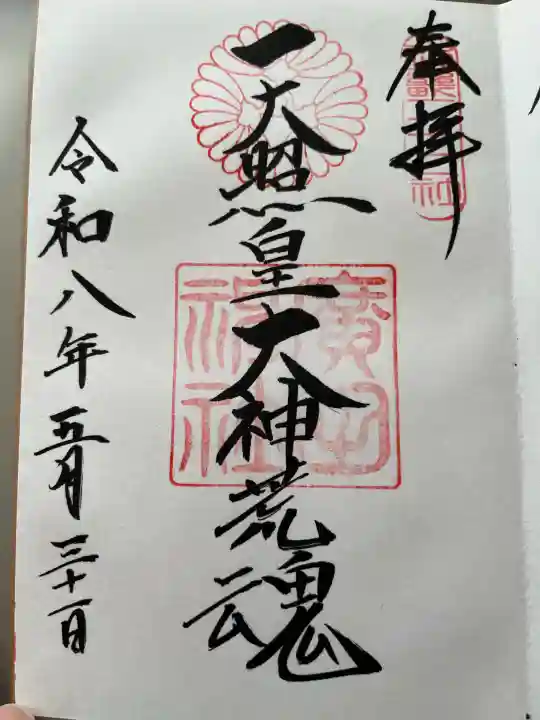 奉拝
天照皇大神荒魂
廣田
神社
令和八年五月三十一日